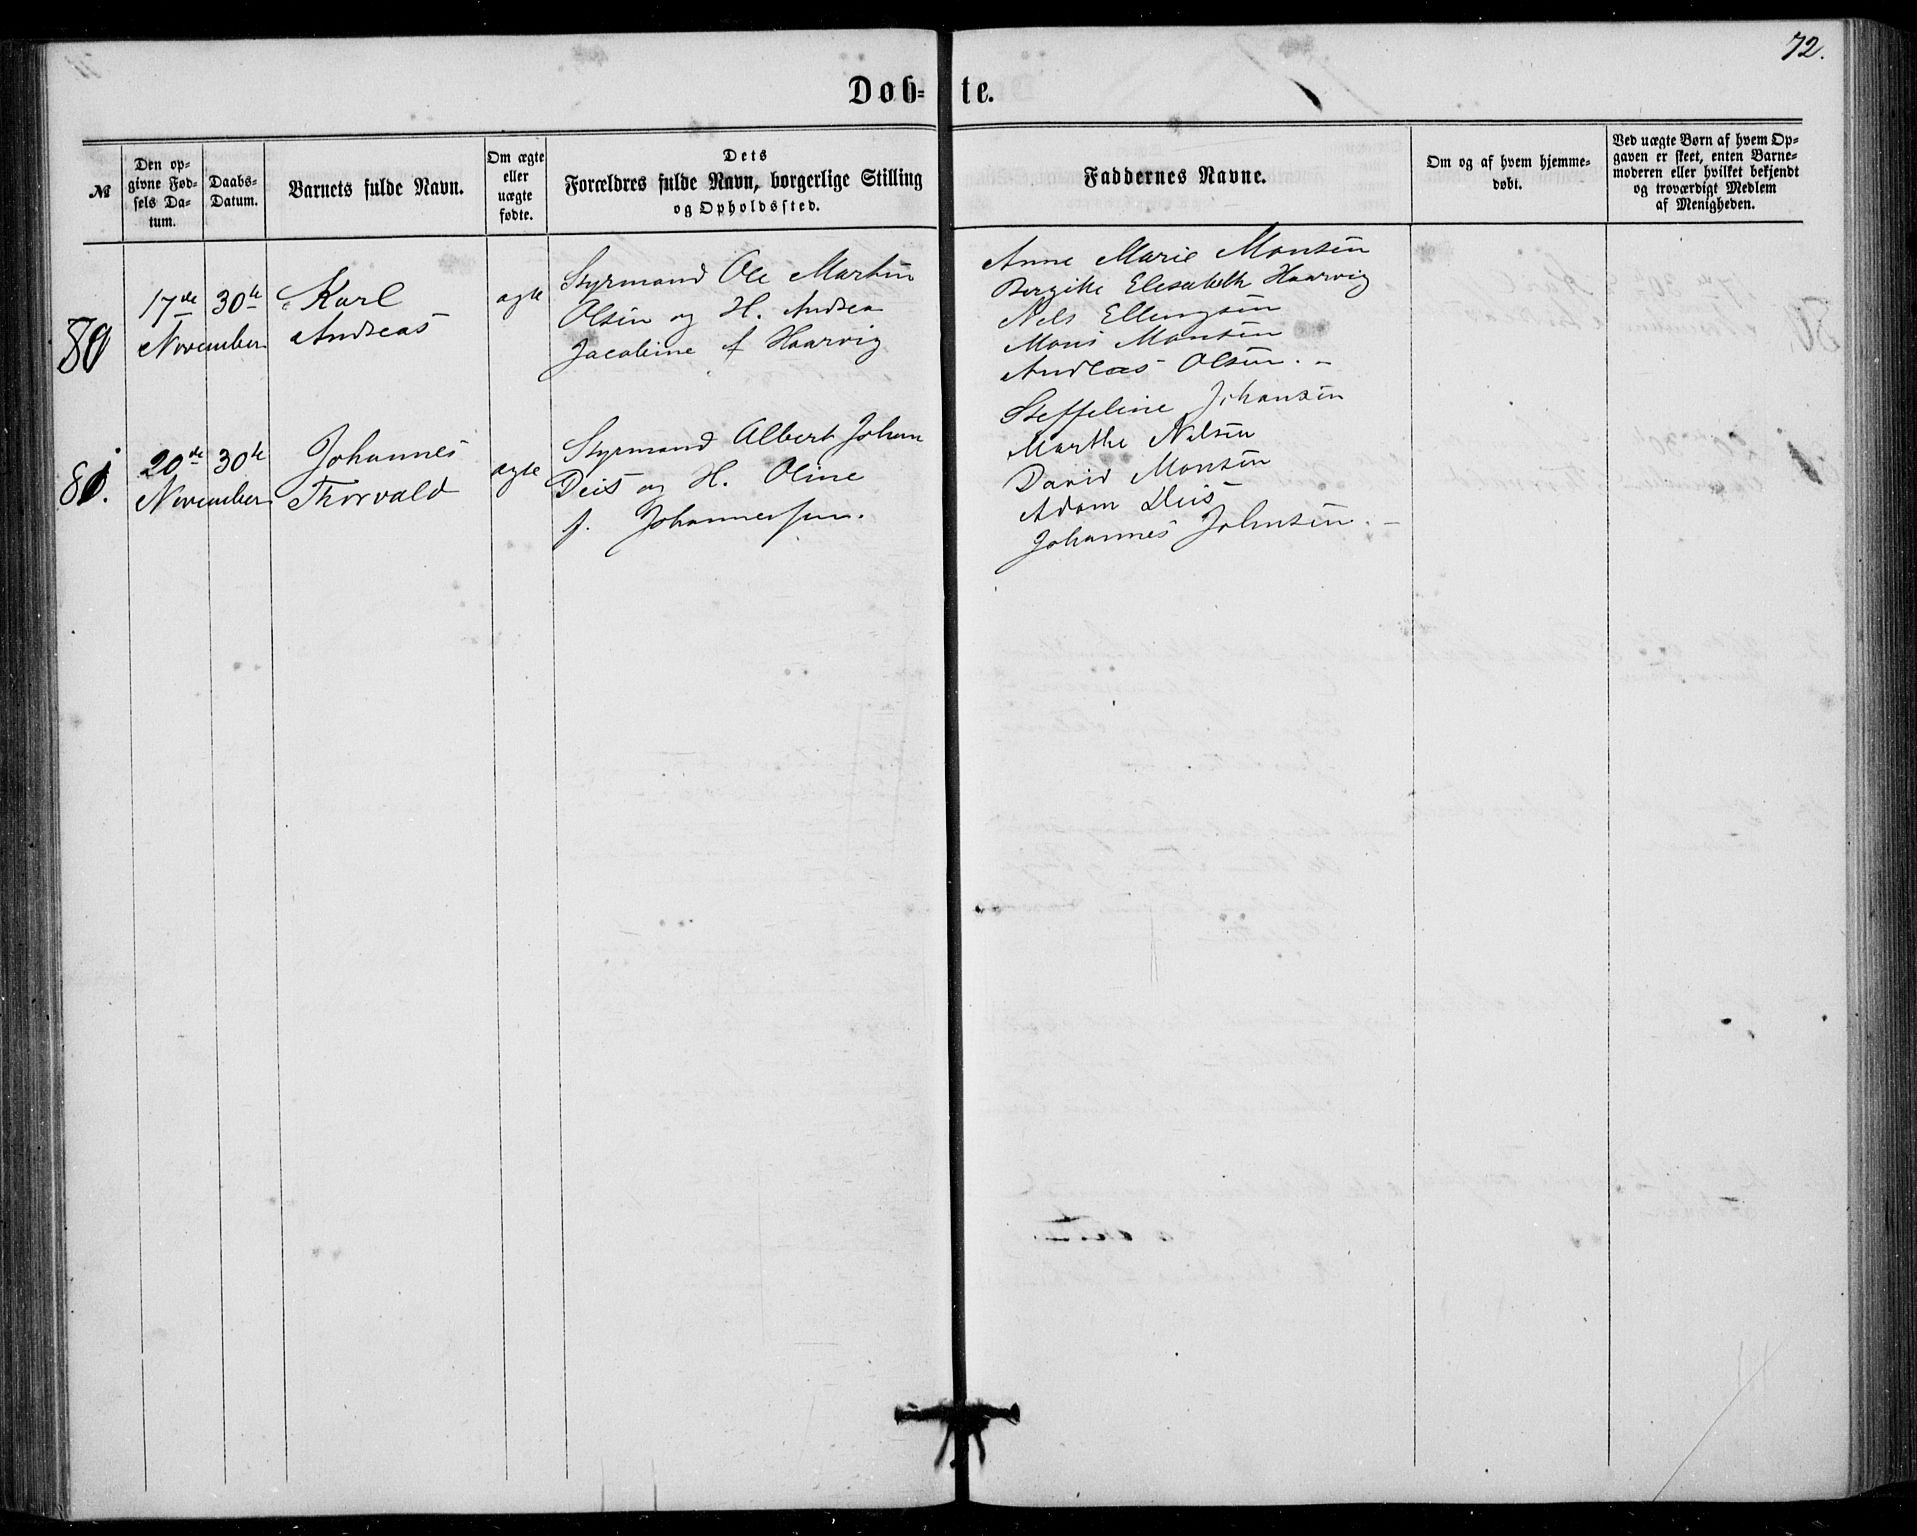 72.
Døb- te.
№
Den op-
givne Fød-
sels Da-
tum.
Daabs-
Datum.
Barnets fulde Navn.
Om ægte
eller
uægte
fødte.
Dets
Forældres fulde Navn, borgerlige Stilling
og Opholdssted.
Faddernes Navne.
Om og af hvem hjemme-
døbt.
Ved uægte Børn af hvem Op-
gaven er skeet, enten Barne-
moderen eller hvilket bekjendt
og troværdigt Medlem
af Menigheden.
80
17de
November
30te
Karl
Andreas
ægte
Styrmand Ole Martin
Olsen og H. Andrea
Jacobine f Haarvig
Anne Marie Monsen
Bergitte Elesabeth Haarvig
Nels Ellingsen
Mons Monsen
Andreas Olsen. –
81.
20de
November
30te
Johannes
Thorvald
ægte
Styrmand Albert Johan
Deis og H. Oline
f. Johannessen.
Steffeline Johansen
Marthe Nelsen
David Monsen
Adam Deis
Johannes Johnsen. –